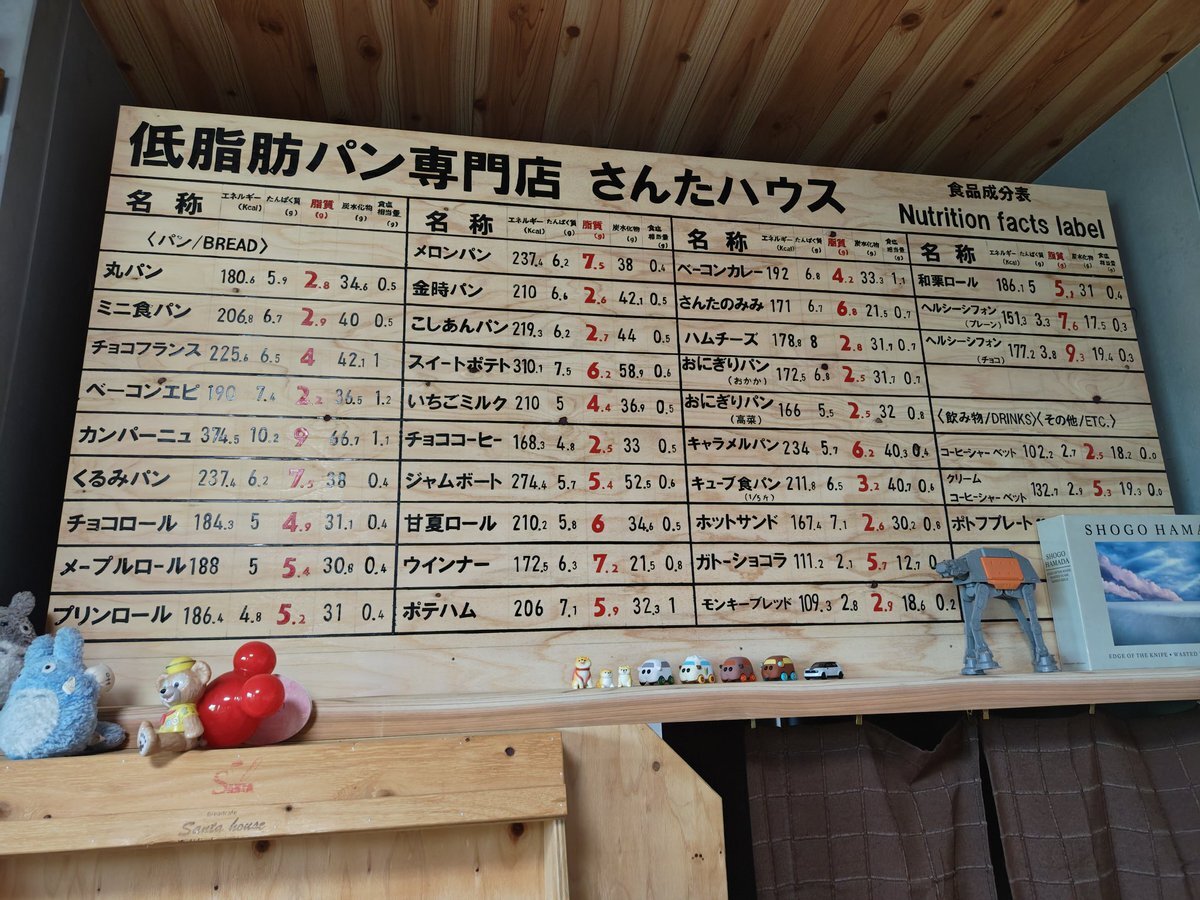 低脂肪パン専門店 さんたハウス
食品成分表
Nutrition facts label
名称 エネルギー(Kcal) たんぱく質(g) 脂質(g) 炭水化物(g) 食塩相当量(g)
〈パン/BREAD〉
丸パン 180.6 5.9 2.8 34.6 0.5
ミニ食パン 206.8 6.7 2.9 40 0.5
チョコフランス 225.6 6.5 4 42.1 1
ベーコンエピ 190 7.4 2.2 36.5 1.2
カンパーニュ 374.5 10.2 9 66.7 1.1
くるみパン 237.4 6.2 7.5 38 0.4
チョコロール 184.3 5 4.9 31.1 0.4
メープルロール 188 5 5.4 30.8 0.4
プリンロール 186.4 4.8 5.2 31 0.4
名称 エネルギー(Kcal) たんぱく質(g) 脂質(g) 炭水化物(g) 食塩相当量(g)
メロンパン 237.4 6.2 7.5 38 0.4
金時パン 210 6.6 2.6 42.1 0.5
こしあんパン 219.3 6.2 2.7 44 0.5
スイートポテト 310.1 7.5 6.2 58.9 0.6
いちごミルク 210 5 4.4 36.9 0.5
チョココーヒー 168.3 4.8 2.5 33 0.5
ジャムボート 274.4 5.7 5.4 52.5 0.6
甘夏ロール 210.2 5.8 6 34.6 0.5
ウインナー 172.5 6.3 7.2 21.5 0.8
ポテハム 206 7.1 5.9 32.3 1
名称 エネルギー(Kcal) たんぱく質(g) 脂質(g) 炭水化物(g) 食塩相当量(g)
ベーコンカレー 192 6.8 4.2 33.3 1.1
さんたのみみ 171 6.7 6.8 21.5 0.7
ハムチーズ 178.8 8 2.8 31.7 0.7
おにぎりパン(おかか) 172.5 6.8 2.5 31.7 0.7
おにぎりパン(高菜) 166 5.5 2.5 32 0.8
キャラメルパン 234 5.7 6.2 40.3 0.4
キューブ食パン(1/5斤) 211.8 6.5 3.2 40.7 0.6
ホットサンド 167.4 7.1 2.6 30.2 0.8
ガトーショコラ 111.2 2.1 5.7 12.7
モンキーブレッド 109.3 2.8 2.9 18.6 0.2
名称 エネルギー(Kcal) たんぱく質(g) 脂質(g) 炭水化物(g) 食塩相当量(g)
和栗ロール 186.1 5 5.1 31 0.4
ヘルシーシフォン(プレーン) 151.3 3.3 7.6 17.5 0.3
ヘルシーシフォン(チョコ) 177.2 3.8 9.3 19.4 0.3
〈飲み物/DRINKS〉〈その他/ETC.〉
コーヒーシャーベット 102.2 2.7 2.5 18.2 0.0
クリームコーヒーシャーベット 132.7 2.9 5.3 19.3 0.0
ポトフプレート
SHOGO HAMA
SHOGO HAMADA
EDGE OF THE KNIFE • WASTED
Santa
Breadcafe
Santa house